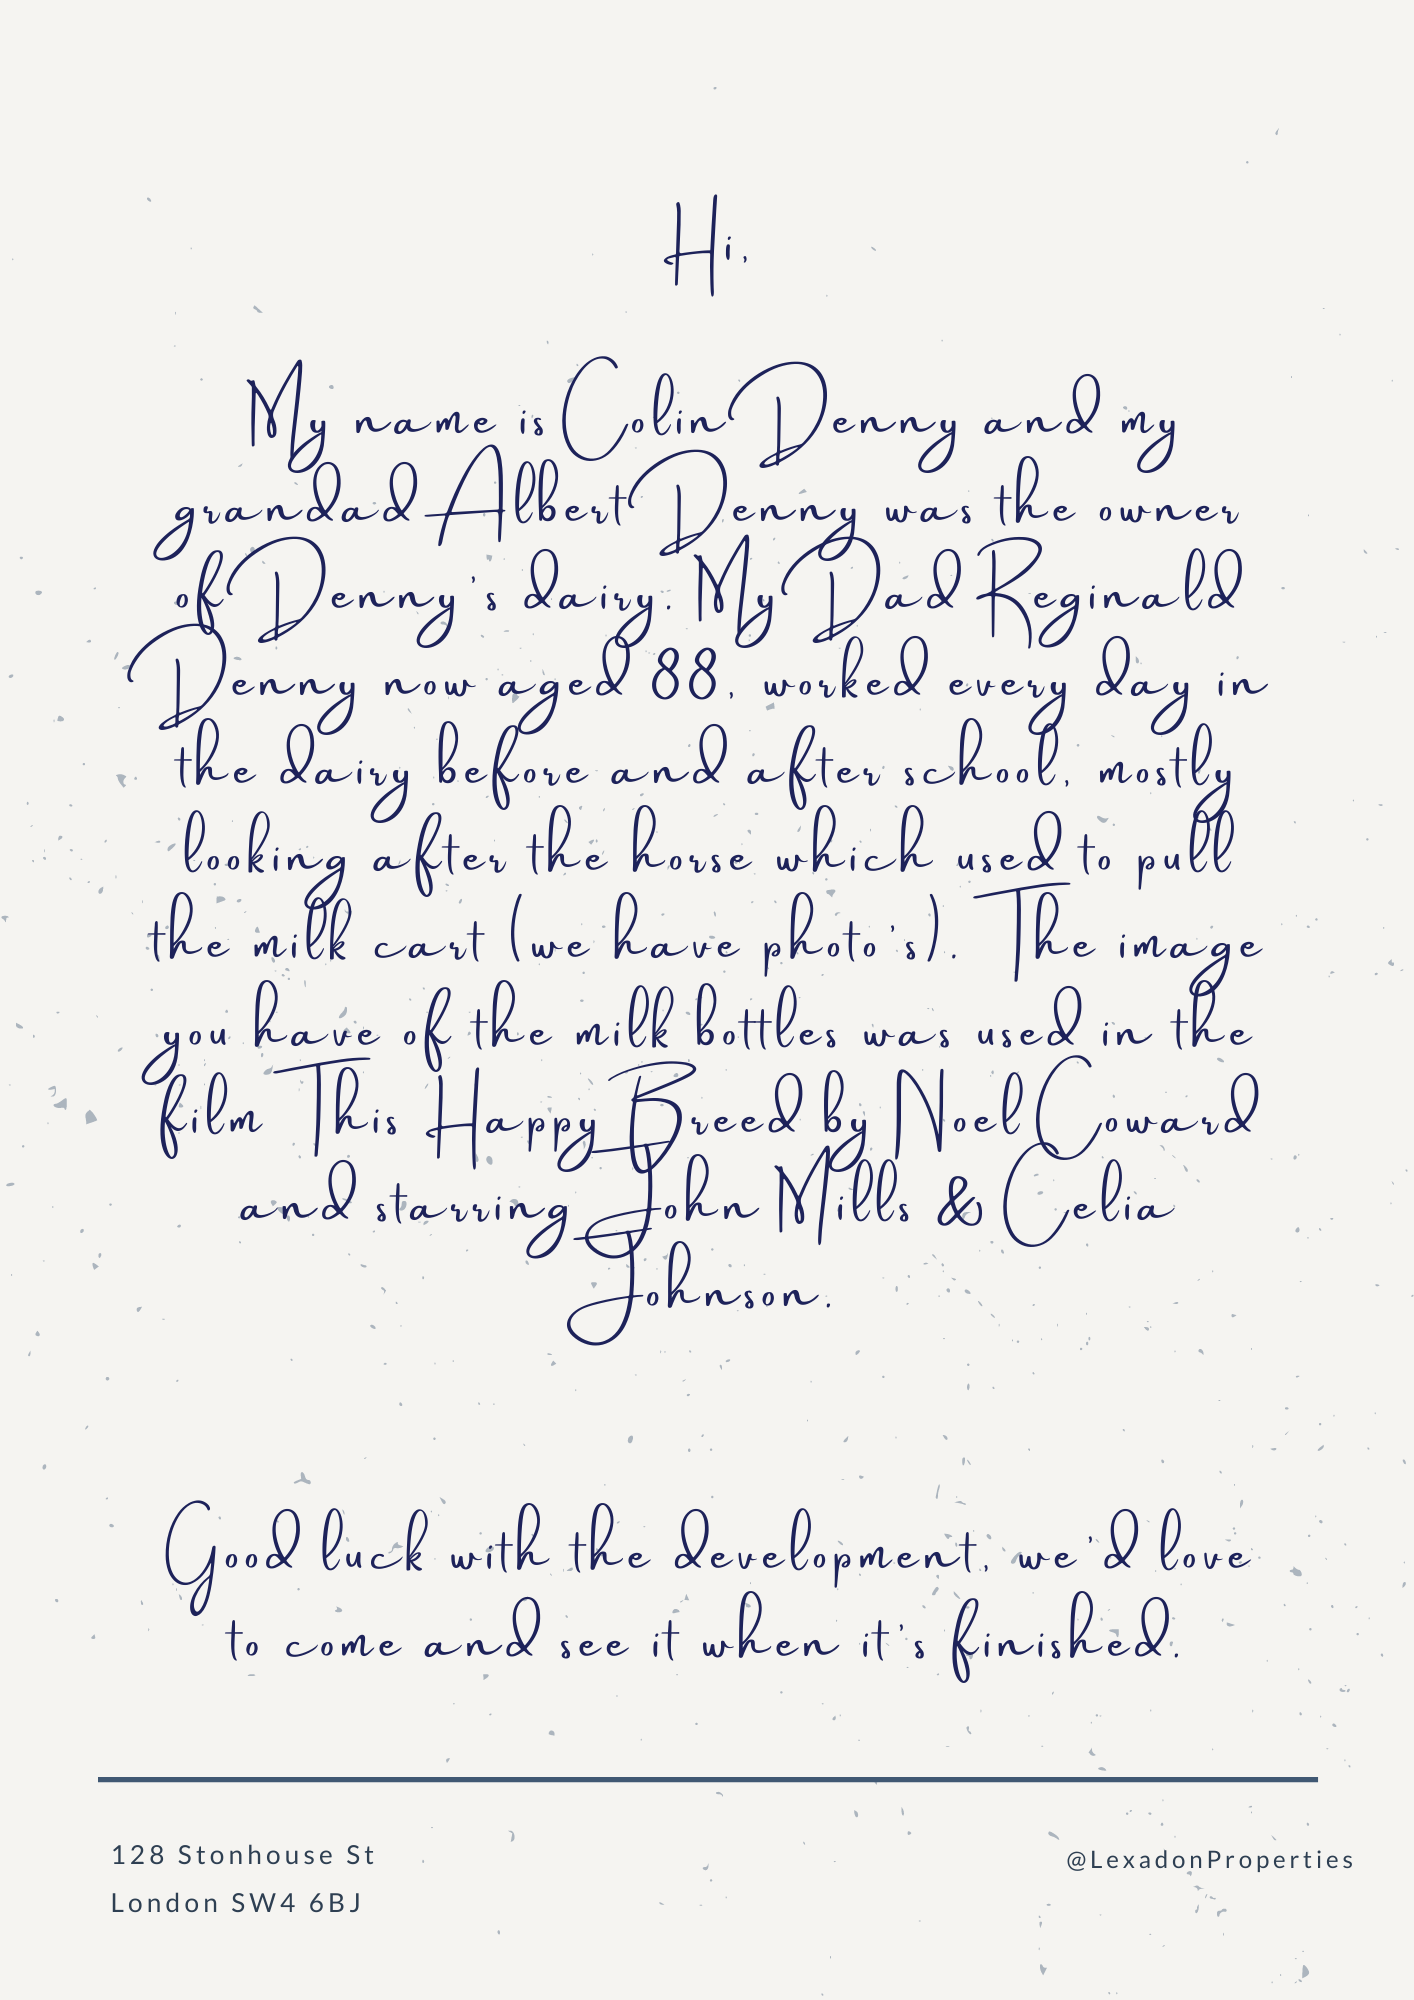 Hi,
My name is Colin Denny and my
grandad Albert Denny was the owner
of Denny's dairy. My Dad Reginald
Denny now aged 88, worked every day in
the dairy before and after school, mostly
looking after the horse which used to pull
the milk cart (we have photo's). The image
you have of the milk bottles was used in the
film This Happy Breed by Noel Coward
and starring John Mills & Celia
Johnson.
Good luck with the development, we'd love
to come and see it when it's finished.
128 Stonhouse St
London SW4 6BJ
@LexadonProperties